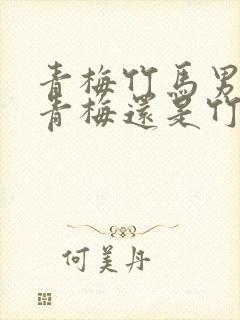 青梅竹馬男
青梅還是竹
何美丹